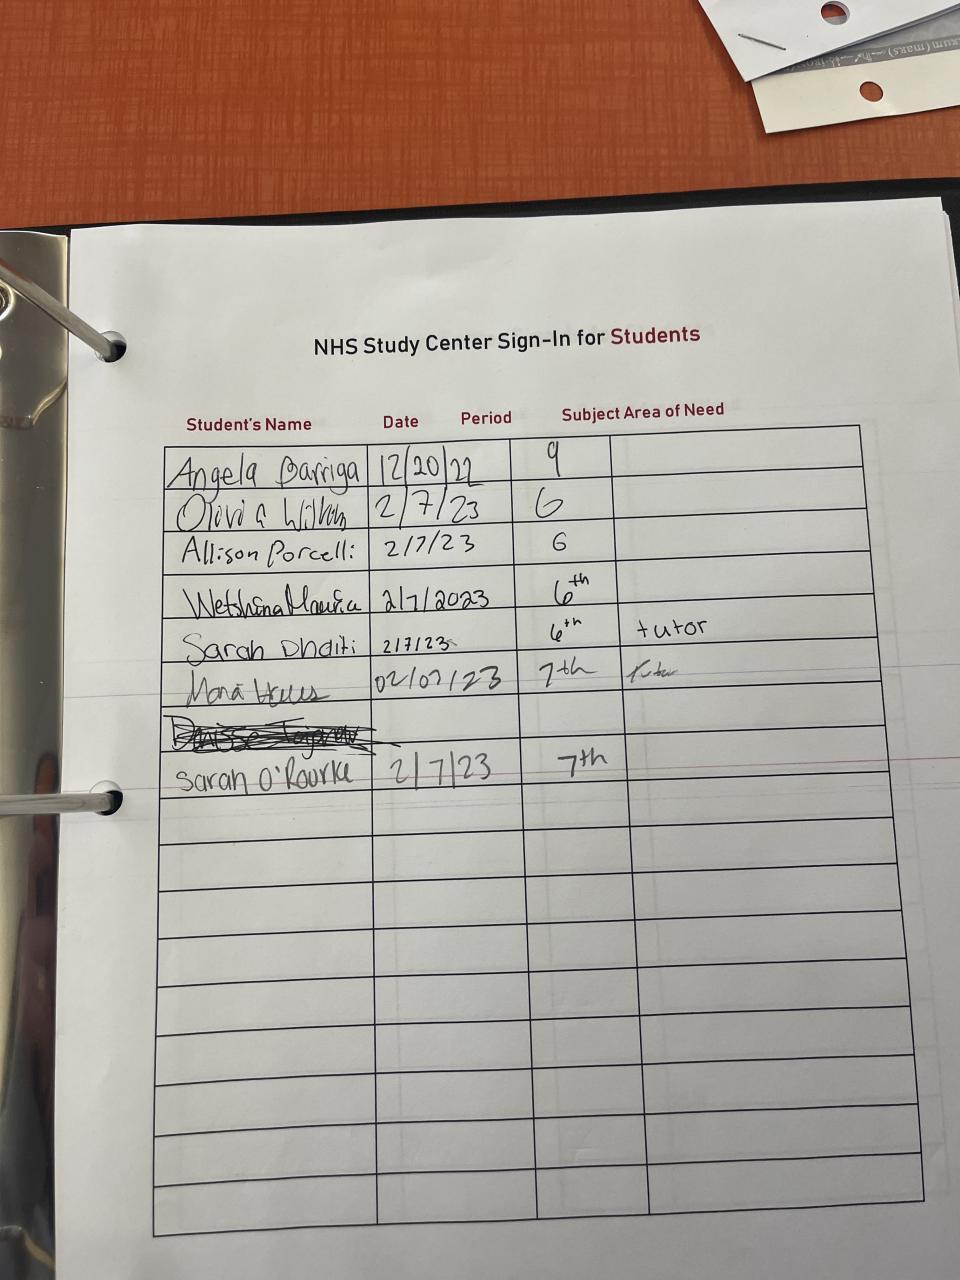 NHS Study Center Sign-In for Students
Student's Name Date Period Subject Area of Need
Angela Barriga 12/20/22 9
Olivia 2/7/23 6
Allison Porcelli 2/7/23 6
2/7/2023 6th
Sarah Dhaiti 2/7/23 6th tutor
02/07/23 7th tutor
Sarah O'Rourke 2/7/23 7th